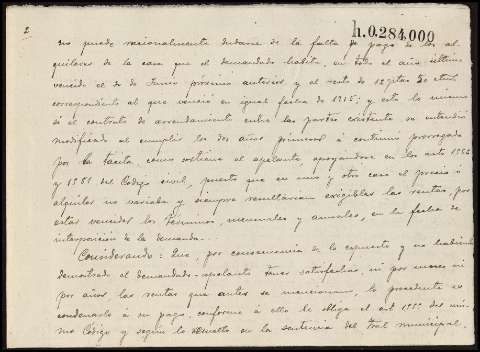 2
h.0.284.000
no puede racionalmente dudarse de la falta de pago de los al-
quileres de la casa que el demandado habita, en todo el año último
vencido el 30 de Junio próximo anterior y el resto de 12 ptas 50 ctms
correspondiente al que vencia en igual fecha de 1915; y esto lo mismo
si el contrato de arrendamiento entre las partes existente se entendió
modificado al cumplir los dos años primeros ó continúo prorrogado
por la tacita como sostiene el apelante apoyandose en los arts 1566
y 1581 del Codigo civil, puesto que en uno y otro caso el precio ó
alquiler no variaba y siempre resultarian exigibles las rentas, por
estar vencidos los terminos, mensuales y anuales, en la fecha de
interposicion de la demanda...
Considerando: Que, por consecuencia de lo expuesto y no habiendo
demostrado el demandado-apelante tener satisfechas, ni por meses ni
por años, las rentas que antes se mencionan, lo procedente es
condenarlo á su pago, conforme á ello le obliga el art 1555 del mis-
mo Codigo y segun lo resuelto en la sentencia del Tral municipal.